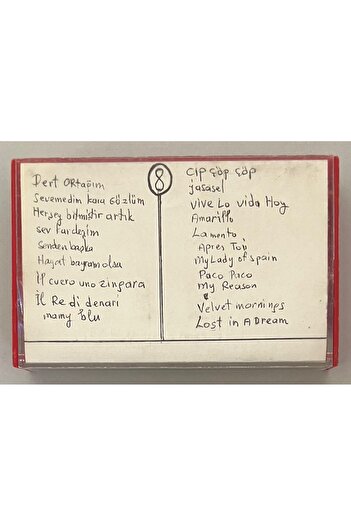 Dert ORtağım
Sevemedim kara Gözlüm
Herşey bitmiştir artık
sev kardeşim
Senden başka
Hayat bayram olsa
İl cuero uno zingara
İl Re di denari
mamy blu
8
CIP ÇÖP ÇÖP
jasasel
Vive Lo vida Hoy
Amarillo
Lamento
Apres Toı
My Lady of spain
Paco Paco
My Reason
Velvet mornings
Lost in A Dream